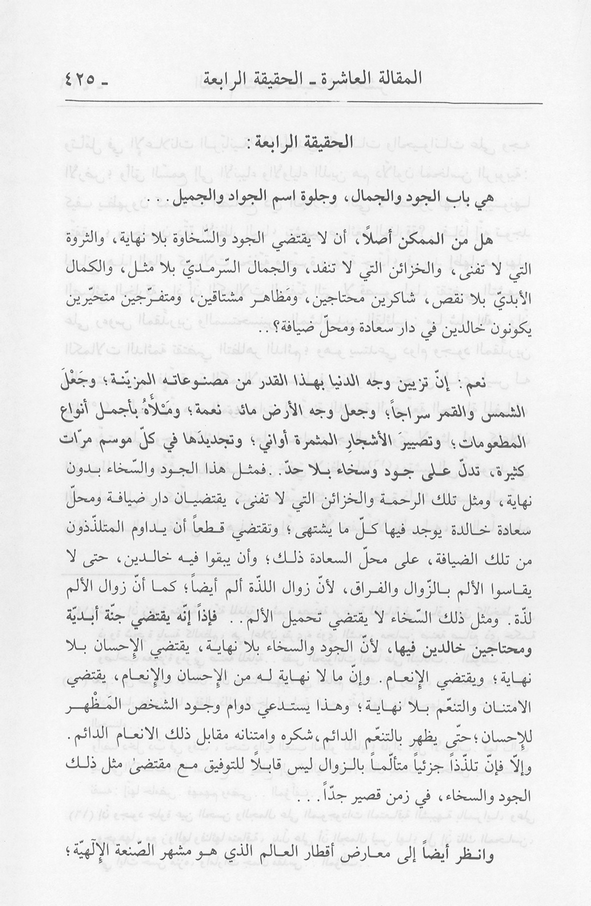 المقالة العاشرة ـ الحقيقة الرابعة ـ ٤٢٥
الحقيقة الرابعة:
هي باب الجود والجمال، وجلوة اسم الجواد والجميل...
هل من الممكن أصلاً، أن لا يقتضي الجود والسّخاوة بلا نهاية، والثروة
التي لا تفنى، والخزائن التي لا تنفد، والجمال السّرمديّ بلا مثل، والكمال
الأبديّ بلا نقص، شاكرين محتاجين، ومَظاهر مشتاقين، ومتفرّجين متحيّرين
يكونون خالدين في دار سعادة ومحلّ ضيافة؟..
نعم: إنّ تزيين وجه الدنيا بهذا القدر من مصنوعاته المزيّنة؛ وجَعْلَ
الشمس والقمر سراجاً؛ وجعل وجه الأرض مائد نعمة؛ ومَلْأَهُ بأجمل أنواع
المطعومات؛ وتصييرَ الأشجار المثمرة أواني؛ وتجديدَها في كلّ موسم مرّات
كثيرة، تدلّ على جود وسخاء بلا حدّ.. فمثل هذا الجود والسّخاء بدون
نهاية، ومثل تلك الرحمة والخزائن التي لا تفنى، يقتضيان دار ضيافة ومحلّ
سعادة خالدة يوجد فيها كلّ ما يشتهى؛ وتقتضي قطعاً أن يداوم المتلذّذون
من تلك الضيافة، على محلّ السعادة ذلك؛ وأن يبقوا فيه خالدين، حتى لا
يقاسوا الألم بالزّوال والفراق، لأنّ زوال اللذّة ألم أيضاً؛ كما أنّ زوال الألم
لذّة. ومثل ذلك السّخاء لا يقتضي تحميل الألم.. فإذاً إنّه يقتضي جنّة أبديّة
ومحتاجين خالدين فيها، لأنّ الجود والسخاء بلا نهاية، يقتضي الإحسان بلا
نهاية؛ ويقتضي الإنعام. وإنّ ما لا نهاية له من الإحسان والإنعام، يقتضي
الامتنان والتنعّم بلا نهاية؛ وهذا يستدعي دوام وجود الشخص المَظْهر
للإحسان؛ حتّى يظهر بالتنعّم الدائم، شكره وامتنانه مقابل ذلك الانعام الدائم.
وإلّا فإنّ تلذّذاً جزئياً متألّماً بالزوال ليس قابلاً للتوفيق مع مقتضىٰ مثل ذلك
الجود والسخاء، في زمن قصير جدّاً...
وانظر أيضاً إلى معارض أقطار العالم الذي هو مشهر الصّنعة الإلٓهيّة؛